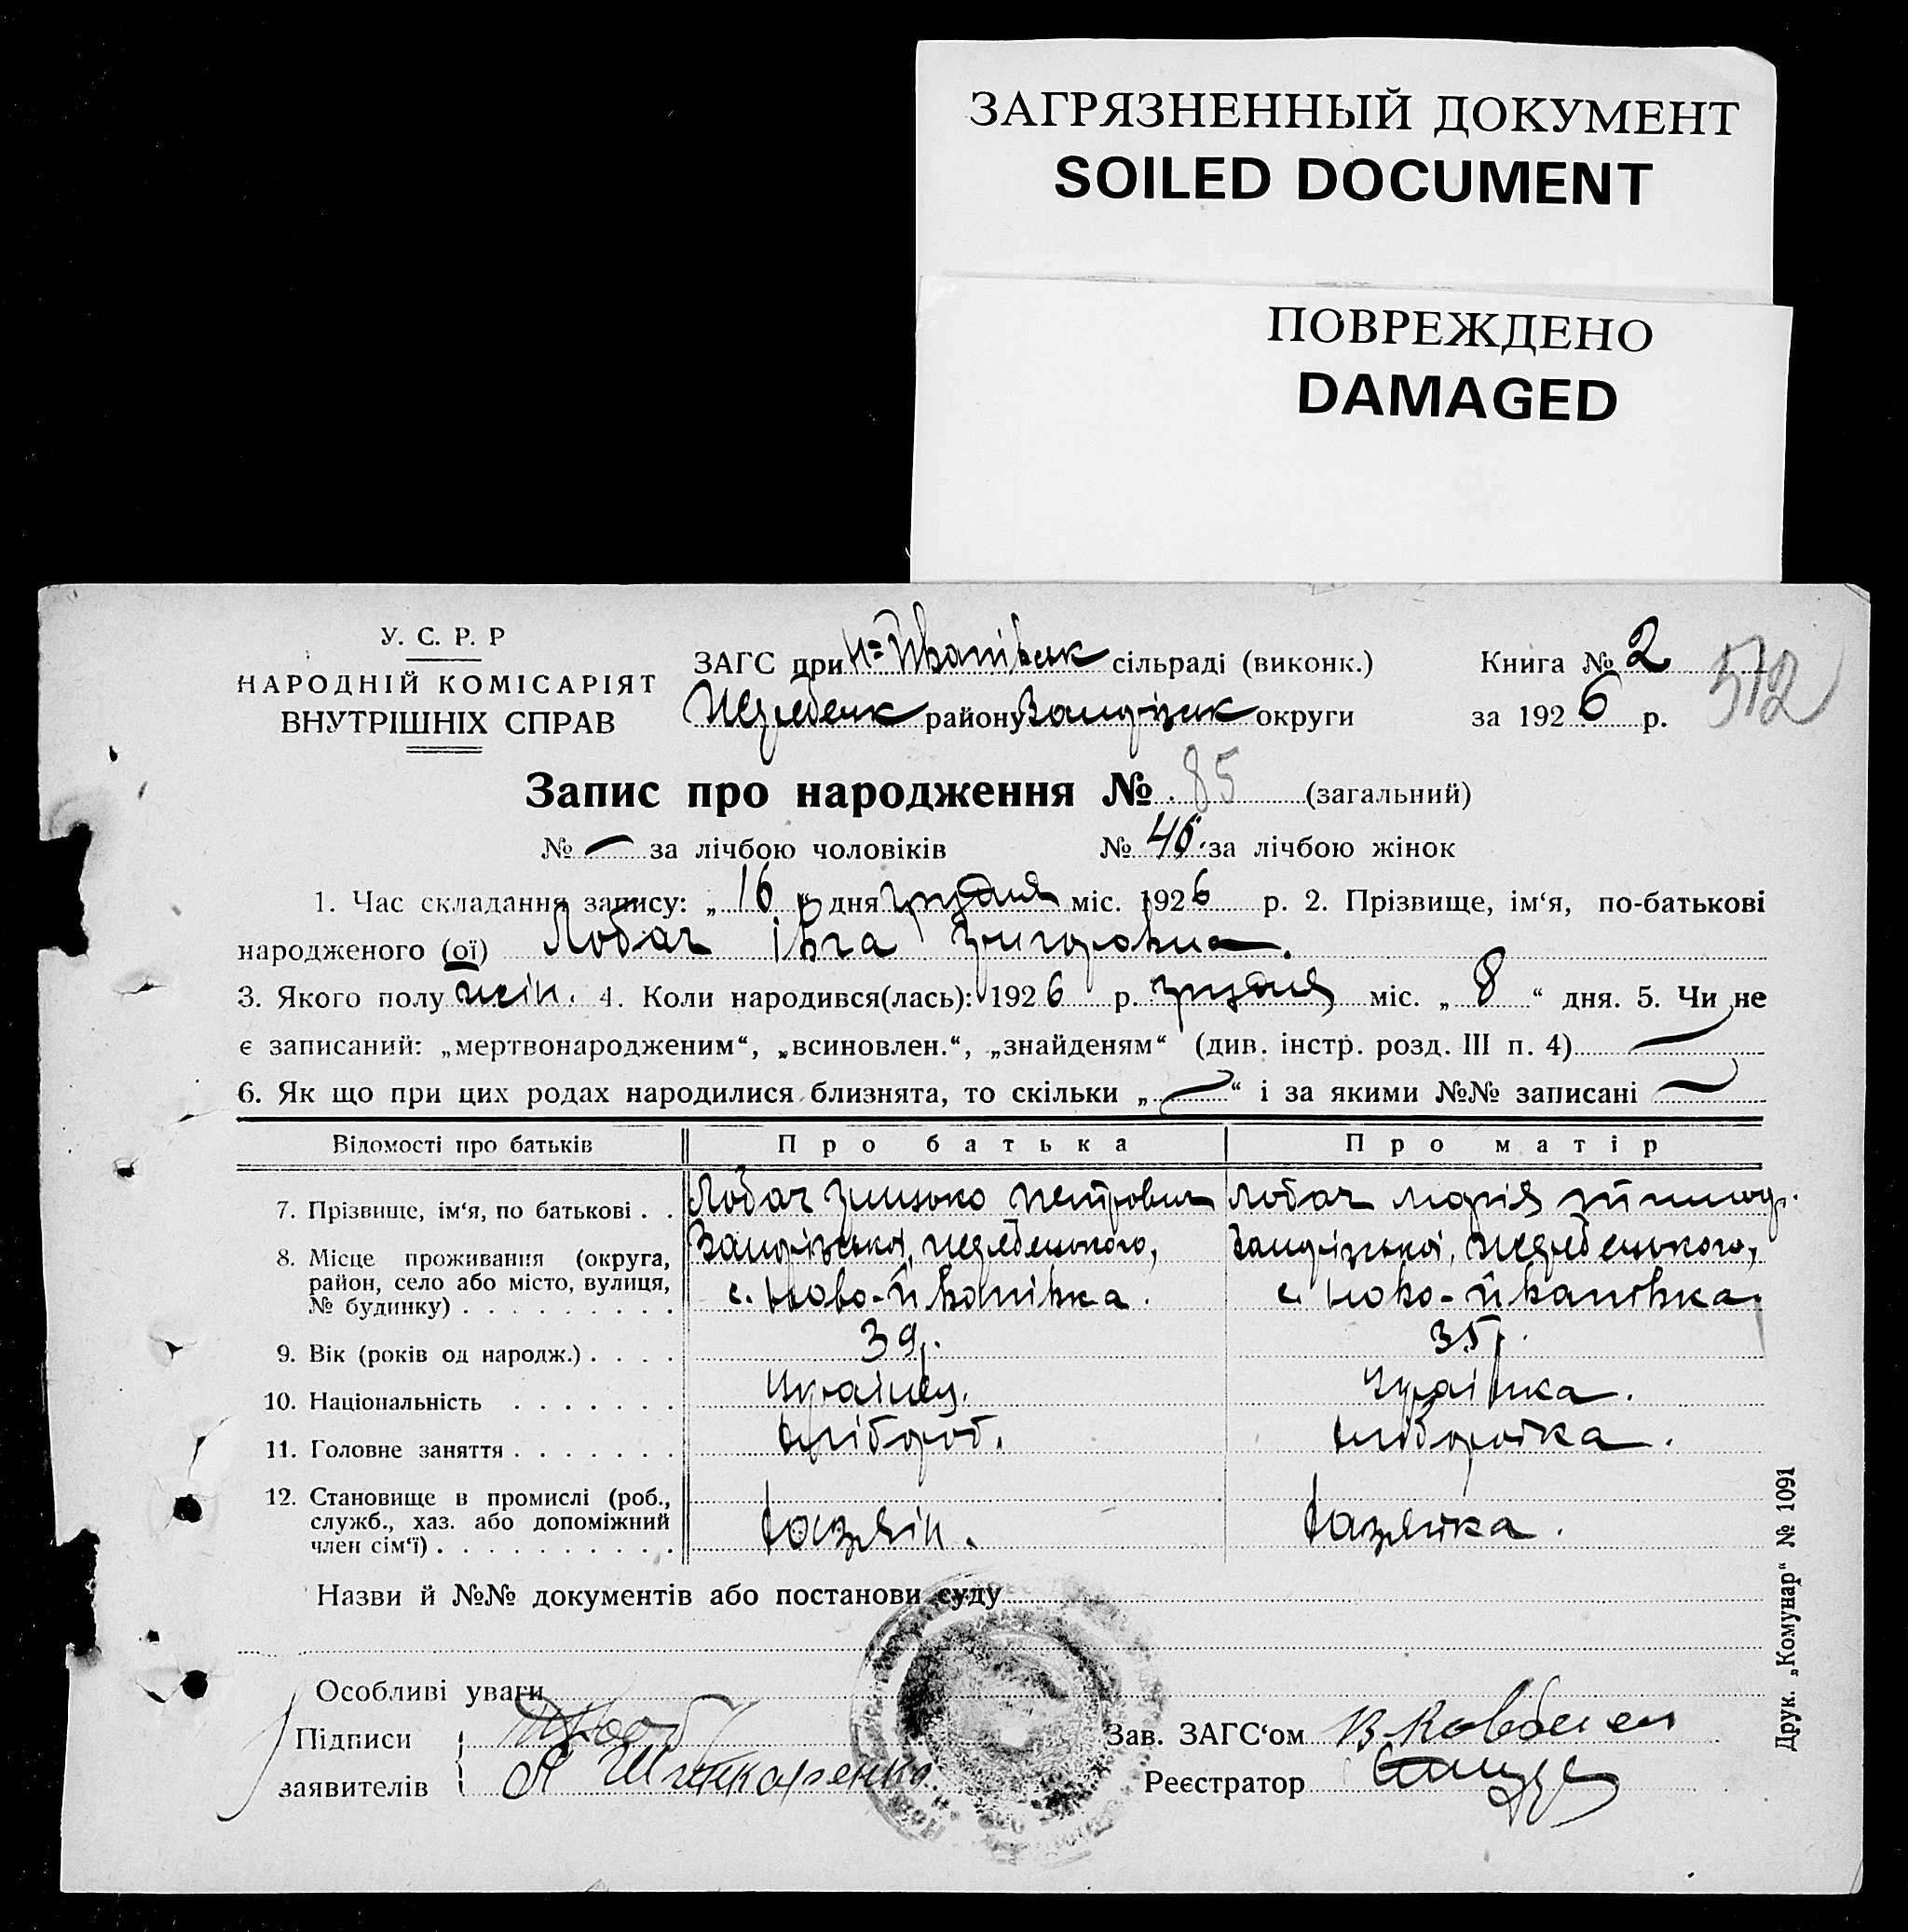 ЗАГРЯЗНЕННЫЙ ДОКУМЕНТ
SOILED DOCUMENT
ПОВРЕЖДЕНО
DAMAGED
У. С. Р. Р
НАРОДНІЙ КОМІСАРІЯТ
ВНУТРІШНІХ СПРАВ
ЗАГС при сільраді (виконк.)
району округи
Книга № 2
за 1926 р.
572
Запис про народження № 85 (загальний)
№ — за лічбою чоловіків № 46 за лічбою жінок
1. Час складання запису: „ 16 “ дня грудня міс. 1926 р. 2. Прізвище, ім‘я, по-батькові
народженого (ої) Лобач Івга Григоровна.
3. Якого полу жін. 4. Коли народився(лась): 1926 р. грудня міс. „ 8 “ дня. 5. Чи не
є записаний: „мертвонародженим“, „всиновлен.“, „знайденям“ (див. інстр. розд. III п. 4) —
6. Як що при цих родах народилися близнята, то скільки „ — “ і за якими №№ записані —
Відомості про батьків Про батька Про матір
7. Прізвище, ім‘я, по батькові . . Лобач Грицько Петрович Лобач Марія
8. Місце проживання (округа,
район, село або місто, вулиця,
№ будинку) . . . . . . . . . с. Ново-Йванівка. с. Ново-Йванівка.
9. Вік (років од народж.) . . . . 39р. 35р.
10. Національність . . . . . . . Українец. Українка.
11. Головне заняття . . . . . . . хлібороб. хліборобка.
12. Становище в промислі (роб.,
служб., хаз. або допоміжний
член сім‘ї) . . . . . . . . . . хазяїн. хазяйка.
Назви й №№ документів або постанови суду
Особливі уваги
Підписи
заявителів
Зав. ЗАГС‘ом
Реєстратор
Друк. „Комунар“ № 1091